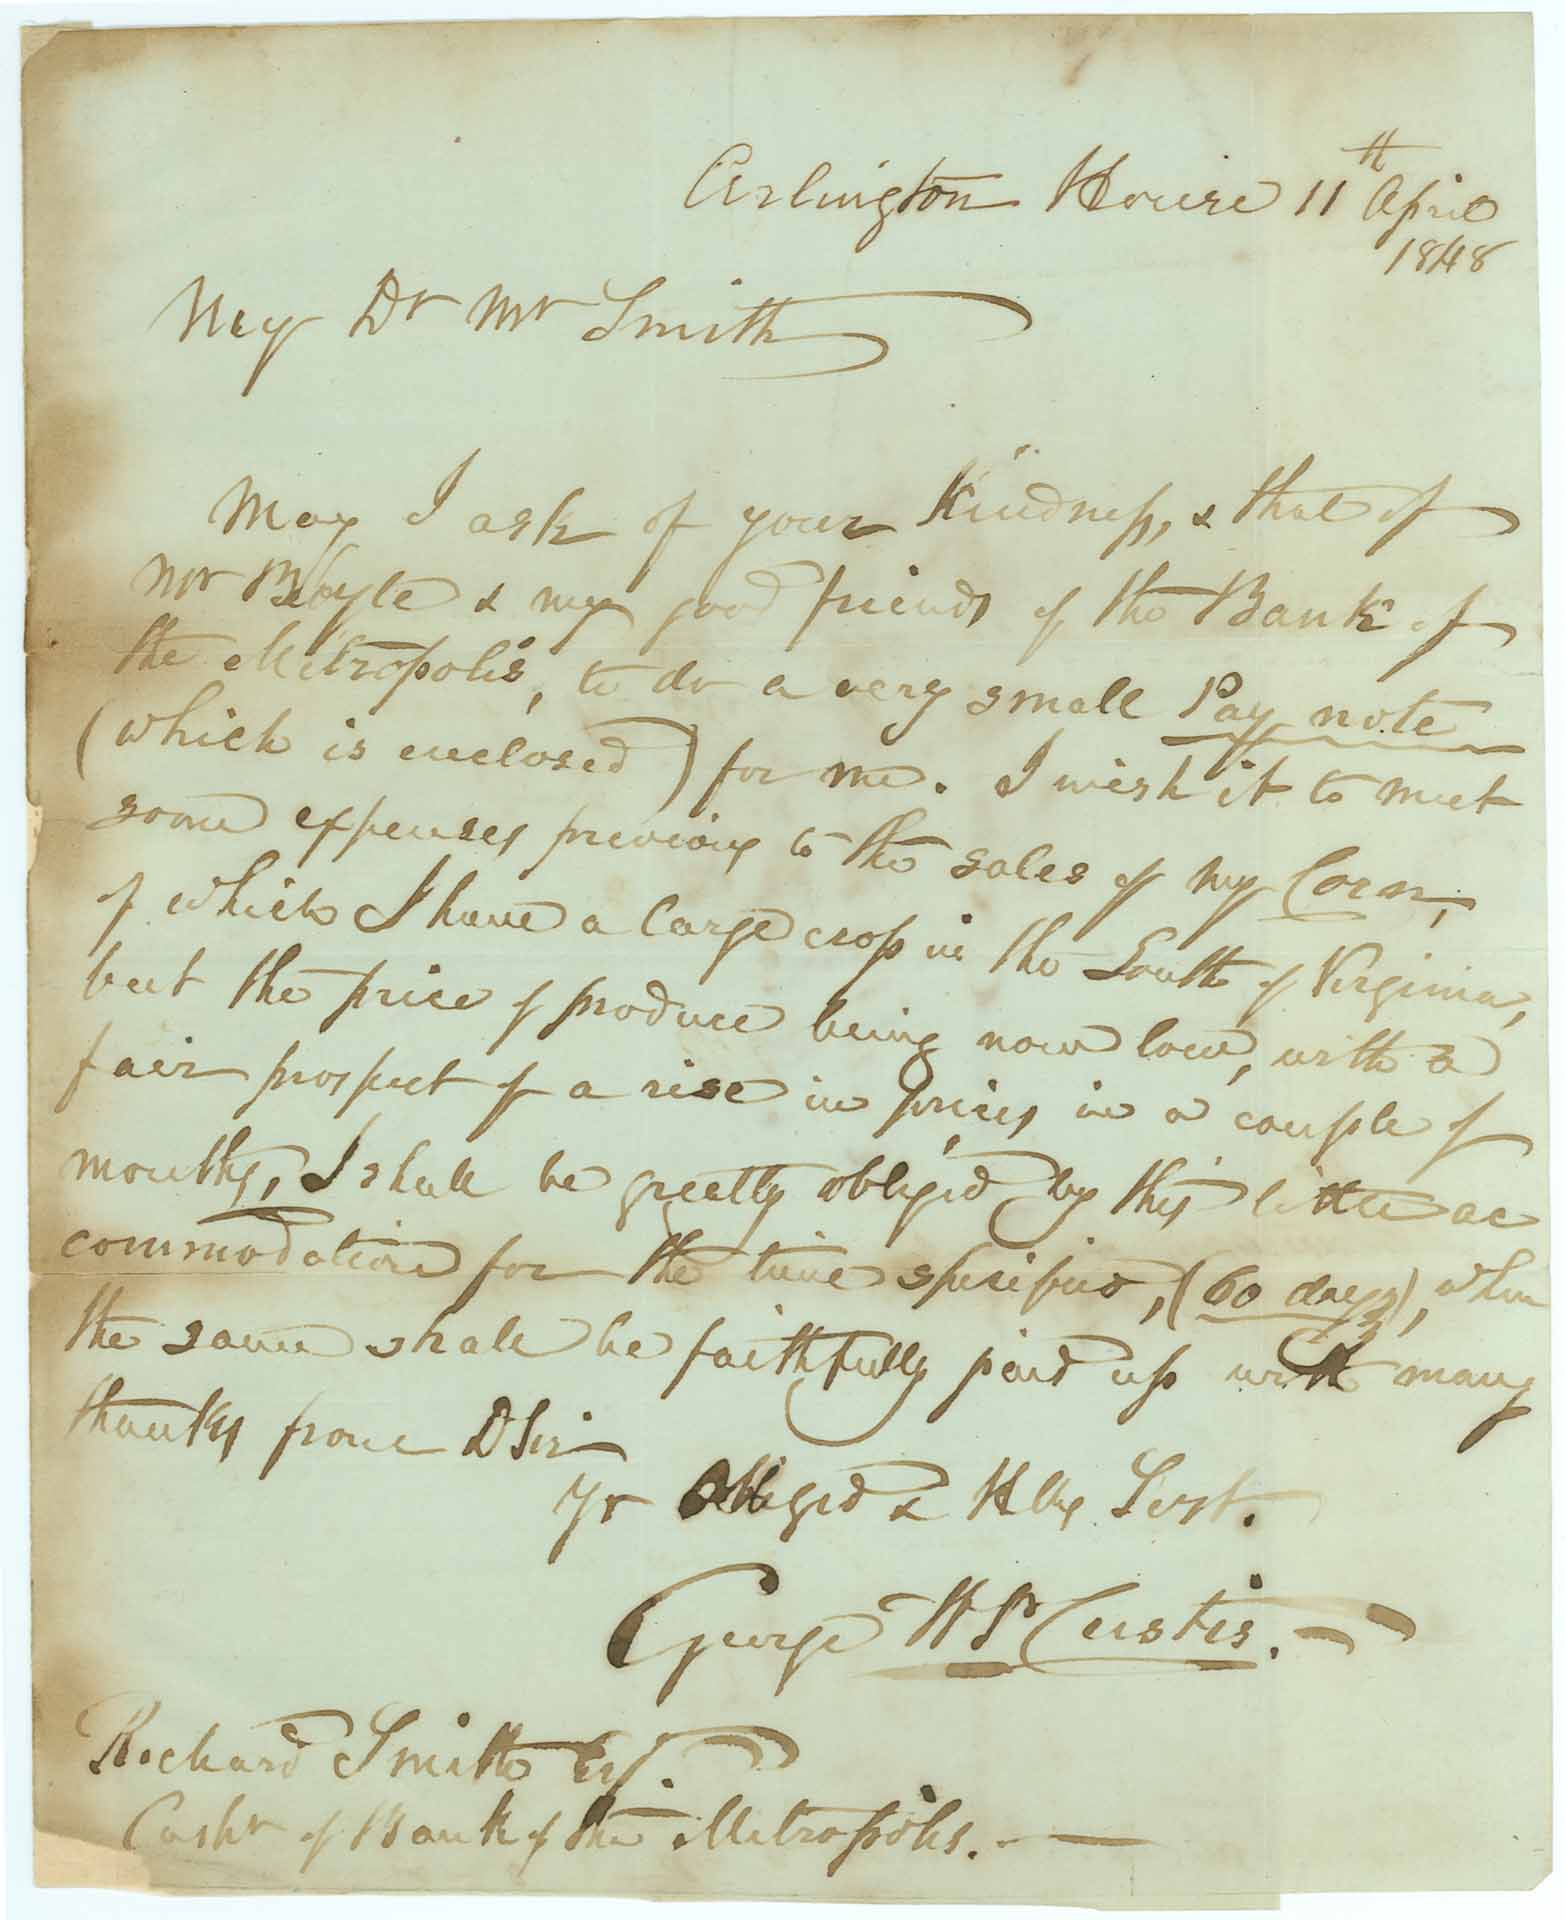 Arlington House 11th April
1848
My Dr Mr Smith
May I ask of your Kindness, & that of
Mr & my good friends of the Bank of
the Metropolis, to do a very small Pay note
(which is enclosed) for me. I wish it to meet
some expenses previous to the sales of my Corn,
of which I have a large crop in the South of Virginia,
but the price of produce being now low, with a
fair prospect of a rise in prices in a couple of
months, I shall be greatly obliged by this little ac
commodation for the time specified, (60 days), when
the same shall be faithfully paid up with many
thanks from D Sir
Yr Obliged & Hble Servt.
George W P Custis.
Richard Smith Esq.
Cashr of Bank of the Metropolis.